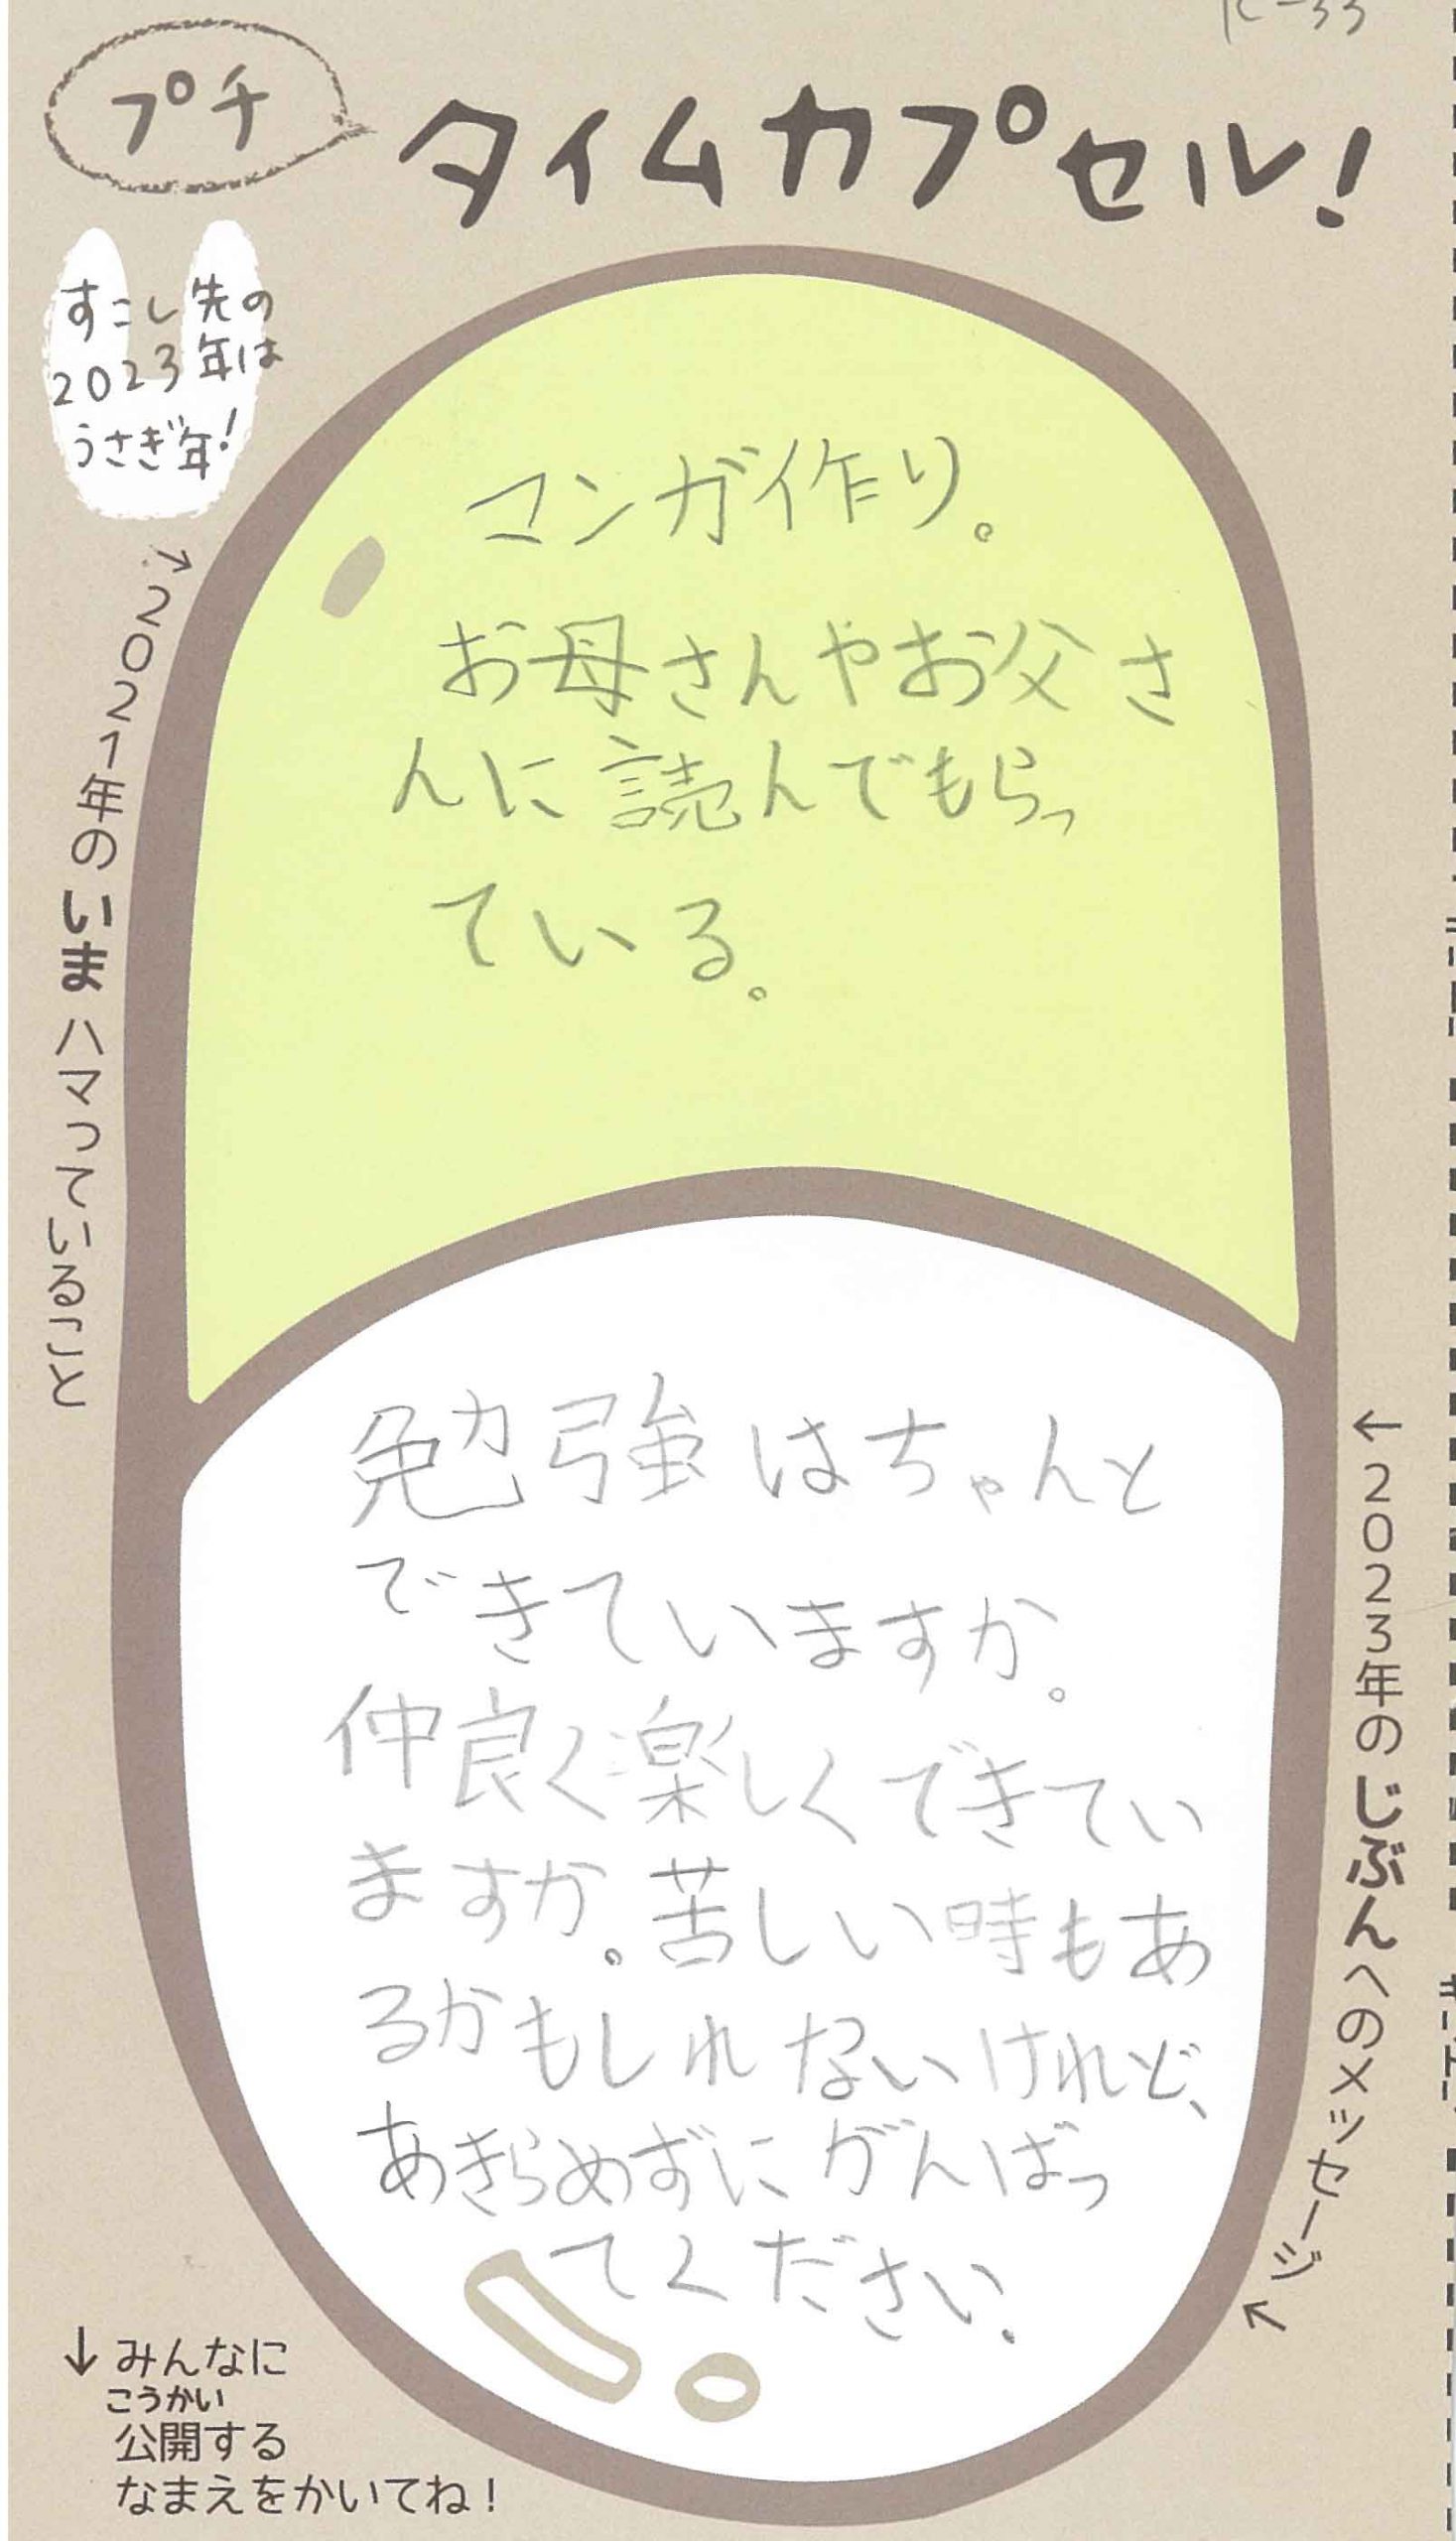 プチ
タイムカプセル!
すこし先の
2023年は
うさぎ年!
→2021年のいまハマっていること
マンガ作り。
お母さんやお父さ
んに読んでもらっ
ている。
←2023年のじぶんへのメッセージ
勉強はちゃんと
できていますか。
仲良く楽しくできてい
ますか。苦しい時もあ
るかもしれないけれど、
あきらめずにがんばっ
てください.
↓みんなに
こうかい
公開する
なまえをかいてね!